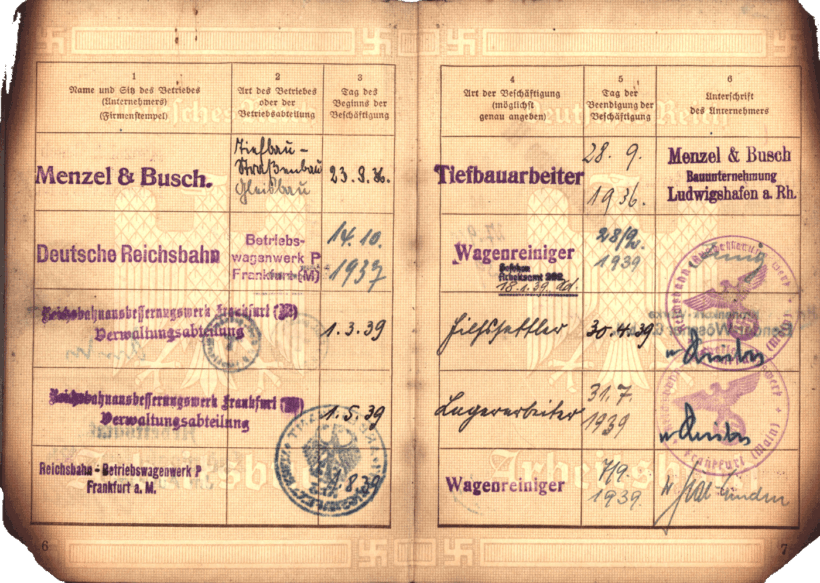 1
Name und Sitz des Betriebes
(Unternehmers)
(Firmenstempel)
2
Art des Betriebes
oder der
Betriebsabteilung
3
Tag des
Beginns der
Beschäftigung
Menzel & Busch.
Tiefbau-
Straßenbau
Gleisbau
23.3.36.
Deutsche Reichsbahn
Betriebs-
wagenwerk P
Frankfurt (M)
14.10.
1937
Reichsbahnausbesserungswerk Frankfurt
Verwaltungsabteilung
1.3.39
Reichsbahnausbesserungswerk Frankfurt
Verwaltungsabteilung
1.5.39
Reichsbahn-Betriebswagenwerk P
Frankfurt a. M.
1.8.39
6
4
Art der Beschäftigung
(möglichst
genau angeben)
5
Tag der
Beendigung der
Beschäftigung
6
Unterschrift
des Unternehmers
Tiefbauarbeiter
28. 9.
1936.
Menzel & Busch
Bauunternehmung
Ludwigshafen a. Rh.
Wagenreiniger
Gesehen
Arbeitsamt
18.1.39.
28/2.
1939
Hilfssattler
30.4.39
Lagerarbeiter
31.7.
1939
Frankfurt (Main)
Wagenreiniger
7/9.
1939.
7
Deutsches Reich
Arbeitsbuch
Deutsches Reich
Arbeitsbuch